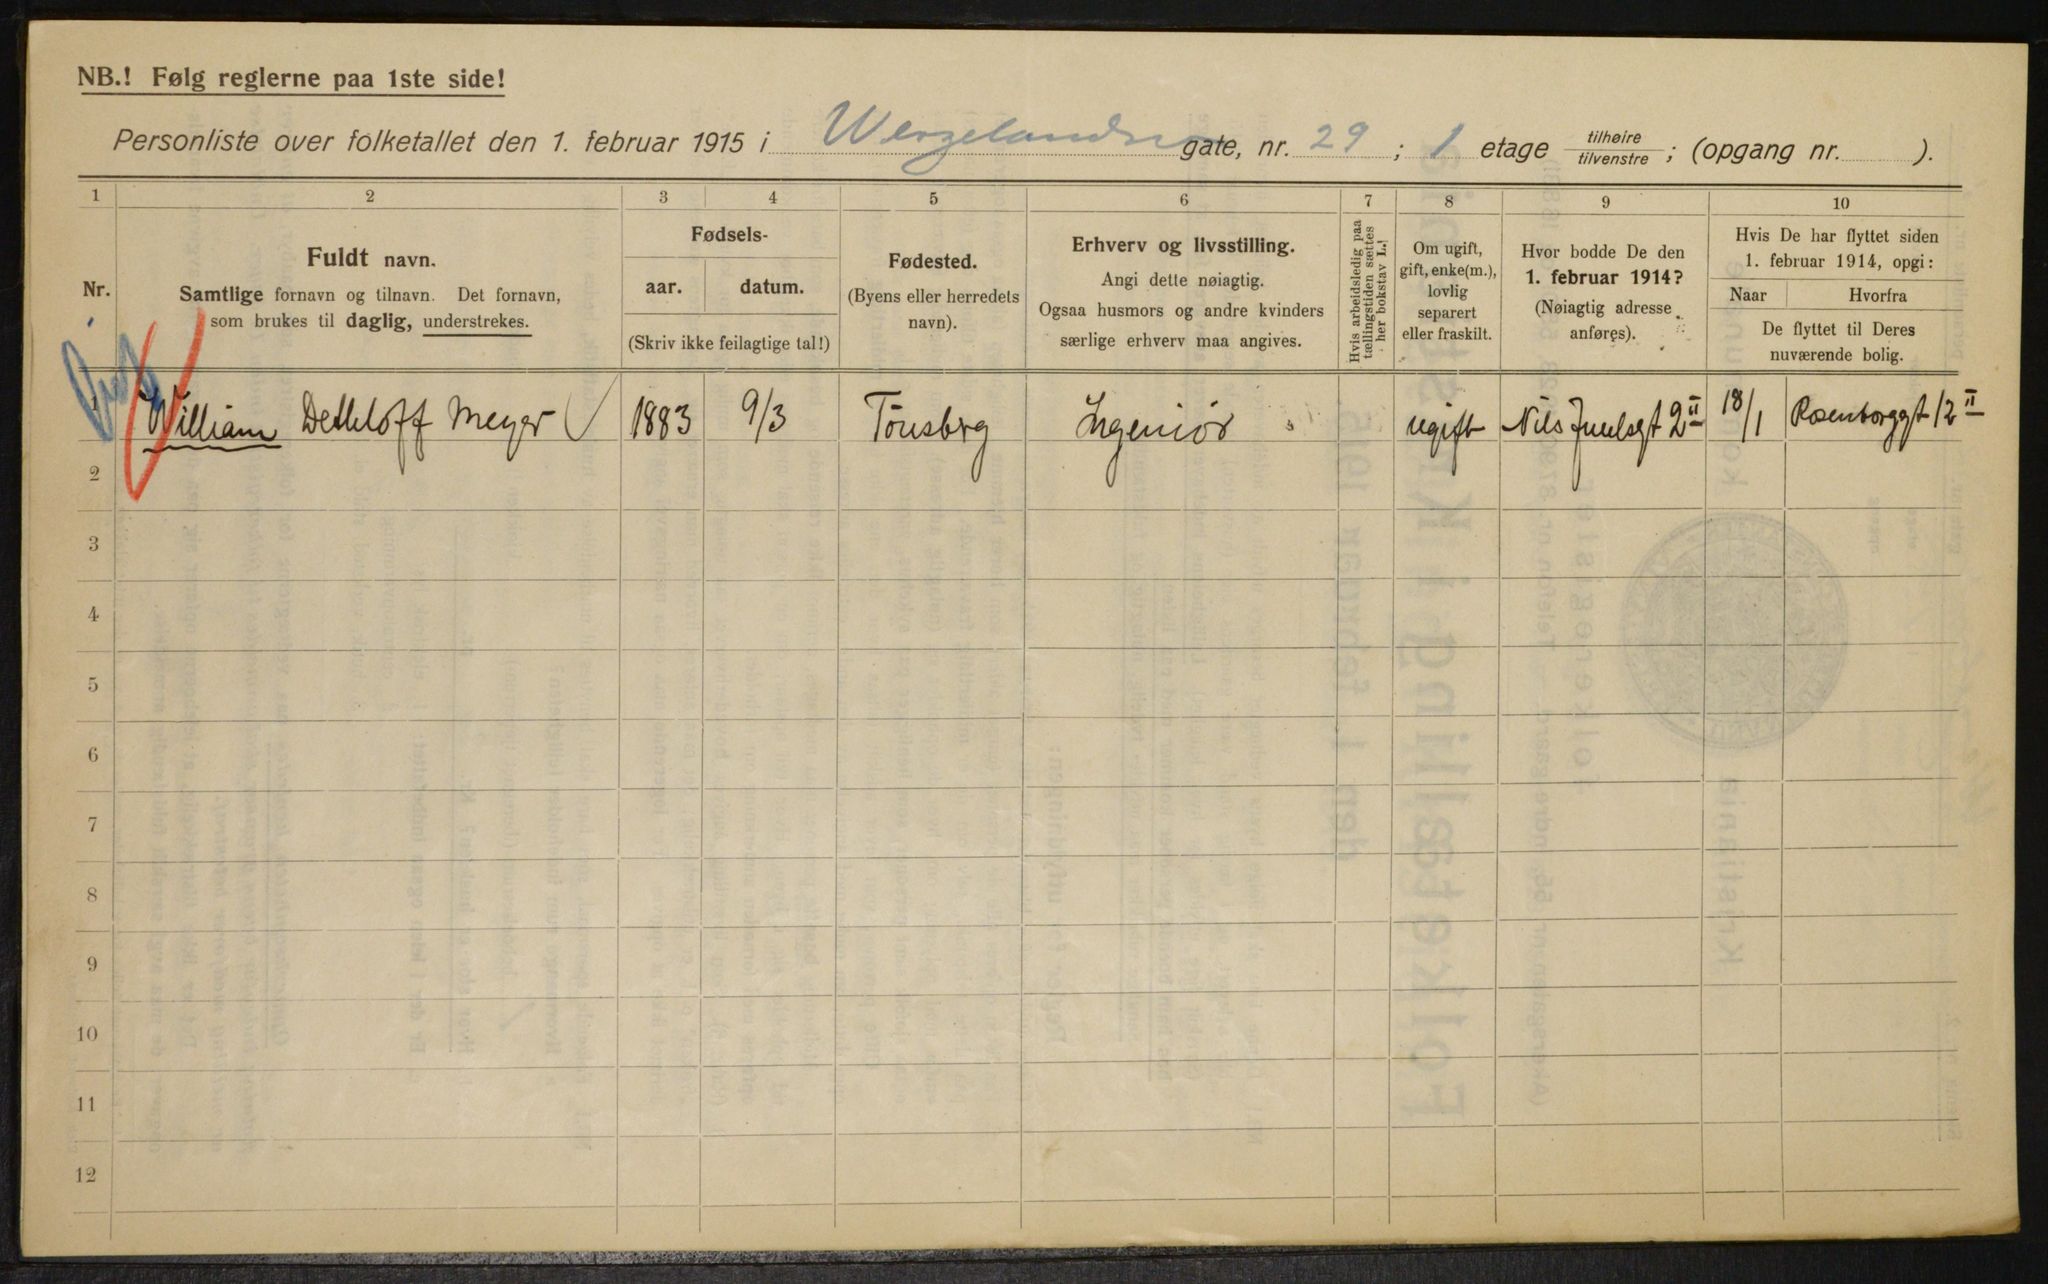 NB.! Følg reglerne paa 1ste side!
Personliste over folketallet den 1. februar 1915 i Wergelandsv gate, nr. 29 ; 1 etage tilhøire tilvenstre ; (opgang nr. ).
1 2 3 4 5 6 7 8 9 10
Nr.
Fuldt navn.
Samtlige fornavn og tilnavn. Det fornavn,
som brukes til daglig, understrekes.
Fødsels-
aar. datum.
(Skriv ikke feilagtige tal!)
Fødested.
(Byens eller herredets
navn).
Erhverv og livsstilling.
Angi dette nøiagtig.
Ogsaa husmors og andre kvinders
særlige erhverv maa angives.
Hvis arbeidsledig paa
tællingstiden sættes
her bokstav L.!
Om ugift,
gift, enke(m.),
lovlig
separert
eller fraskilt.
Hvor bodde De den
1. februar 1914?
(Nøiagtig adresse
anføres).
Hvis De har flyttet siden
1. februar 1914, opgi:
Naar Hvorfra
De flyttet til Deres
nuværende bolig.
1 William Dethloff Meyer 1883 9/3 Tönsberg Ingeniör ugift Nils Juulsgt 2 II 18/1 Rosenborggt 12 II
2
3
4
5
6
7
8
9
10
11
12